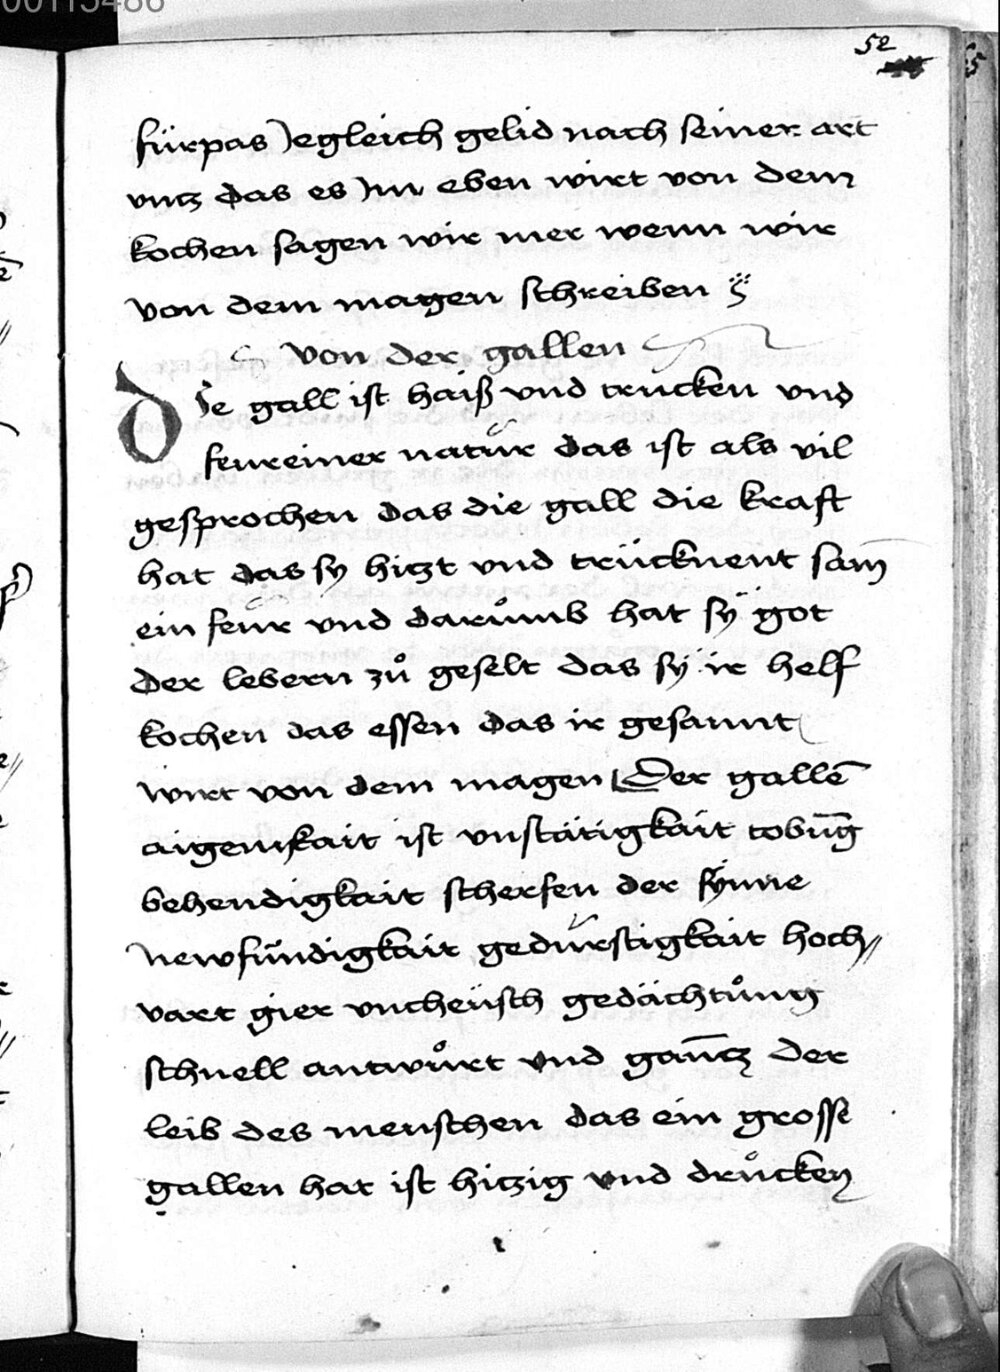 00115486
52
fürpas Jegleich gelid nach seiner art
vntz das es Jm eben wirt von dem
kochen sagen wir mer wenn wir
von dem magen schreiben
von der gallen
Die gall ist haiß vnd trucken vnd
feureiner natur das ist als vil
gesprochen das die gall die kraft
hat das sy hitzt vnd trücknent sam̄
ein feur vnd darůmb hat sÿ got
der lebern zů geselt das sÿ ir helf
kochen das essen das ir gesannt
wirt von dem magen Der gallē
aigenikait ist vnstätigkait tobūg
behendigkait scherfen der sÿnne
newfündigkait gedurstigkait hoch//
vart gier vncheüsch gedächtůng
schnell antwůrt vnd gan̄tz der
leib des menschen das ein grosse
gallen hat ist hitzig vnd drůcken